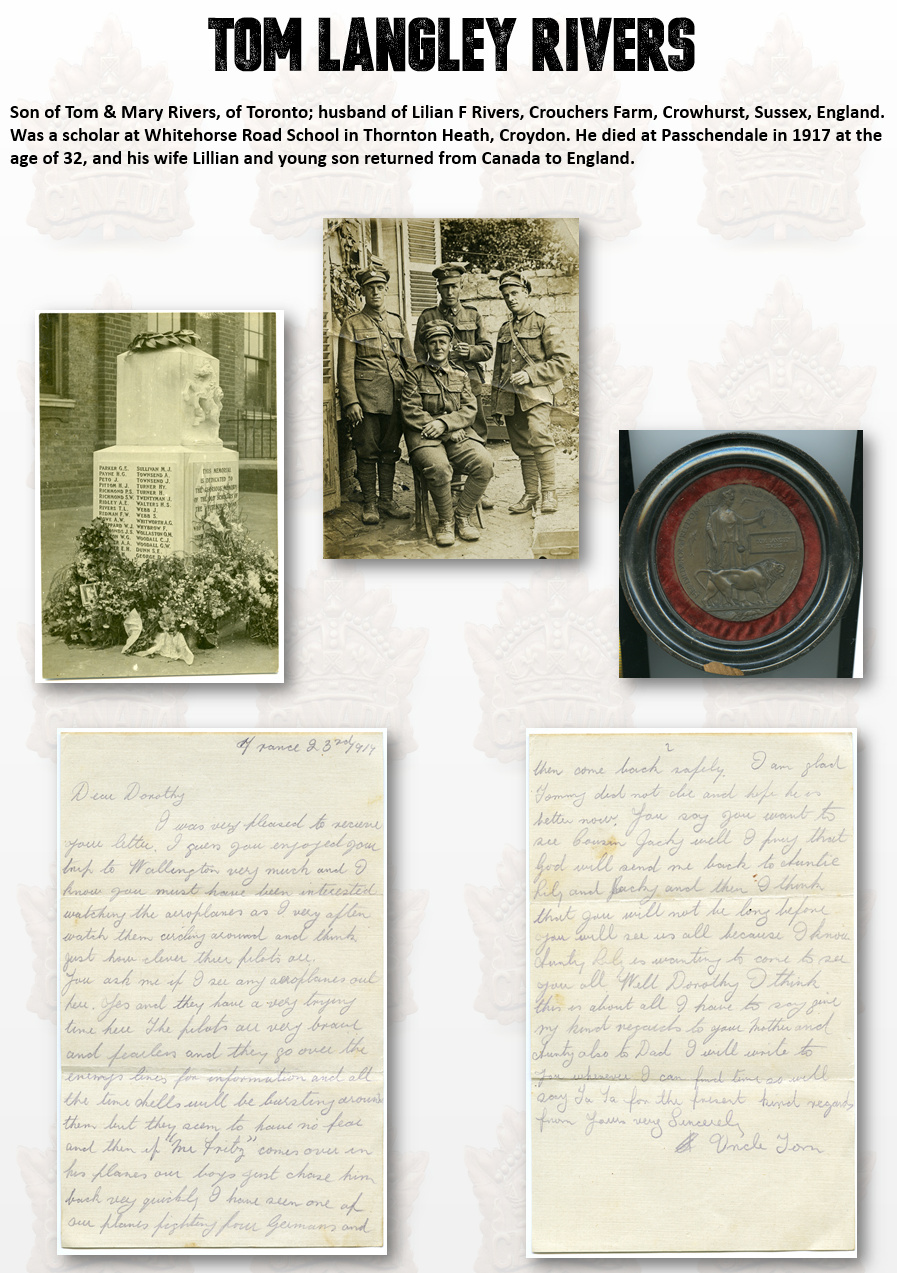 TOM LANGLEY RIVERS
Son of Tom & Mary Rivers, of Toronto; husband of Lilian F Rivers, Crouchers Farm, Crowhurst, Sussex, England.
Was a scholar at Whitehorse Road School in Thornton Heath, Croydon. He died at Passchendale in 1917 at the
age of 32, and his wife Lillian and young son returned from Canada to England.
PARKER G.E.
PAYNE H.G.
PETO J.
PITTOM H.J.
RICHMOND P.S.
RICHMOND S.W.
RIDLEY A.E.
RIVERS T.L.
REDMAN F.W.
SULLIVAN M.J.
TOWNSEND A.
TOWNSEND J.
TURNER HY.
TURNER H.
TWENTYMAN J.
WALTERS H.S.
WEBB J.
WEBB S.
WHITWORTH A.G.
WHYBROW F.
WOLLASTON G.H.
WOODALL C.J.
WOODALL G.W.
DUNN S.E.
GEORGE
THIS MEMORIAL
IS DEDICATED TO
THE GLORIOUS MEMORY
OF THE OLD SCHOLARS OF
France 23rd/1917
Dear Dorothy
I was very pleased to receive
your letter. I guess you enjoyed your
trip to Wallington very much and I
know you must have been interested
watching the aeroplanes as I very often
watch them circling around and think
just how clever their pilots are.
You ask me if I see any aeroplanes out
here. Yes and they have a very trying
time here The pilots are very brave
and fearless and they go over the
enemys lines for information and all
the time shells will be bursting around
them but they seem to have no fear
and then if "Mr Fritz" comes over in
his planes our boys just chase him
back very quickly I have seen one of
our planes fighting four Germans and
2
then come back safely. I am glad
Tommy did not die and hope he is
better now. You say you want to
see Cousin Jacky well I pray that
God will send me back to Auntie
Lily and Jacky and then I think
that you will not be long before
you will see us all because I know
Aunty Lily is wanting to come to see
you all Well Dorothy I think
this is about all I have to say give
my kind regards to your Mother and
Aunty also to Dad I will write to
you whenever I can find time so will
say Ta Ta for the present kind regards
from Yours very Sincerely
Uncle Tom
CANADA
CANADA
CANADA
CANADA